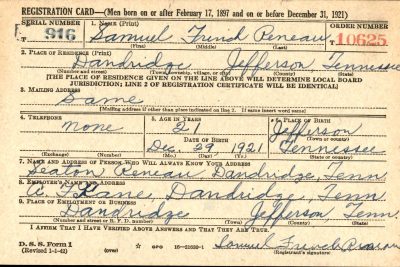 REGISTRATION CARD—(Men born on or after February 17, 1897 and on or before December 31, 1921)
SERIAL NUMBER 1. NAME (Print) ORDER NUMBER
T 916 Samuel Frend Reneau T 10625
(First) (Middle) (Last)
2. PLACE OF RESIDENCE (Print)
Dandridge Jefferson Tennessee
(Number and street) (Town, township, village, or city) (County) (State)
[THE PLACE OF RESIDENCE GIVEN ON THE LINE ABOVE WILL DETERMINE LOCAL BOARD
JURISDICTION; LINE 2 OF REGISTRATION CERTIFICATE WILL BE IDENTICAL]
3. MAILING ADDRESS
Same
[Mailing address if other than place indicated on line 2. If same insert word same]
4. TELEPHONE 5. AGE IN YEARS 6. PLACE OF BIRTH
None 21 Jefferson
DATE OF BIRTH (Town or county)
Dec. 29 1921 Tennessee
(Exchange) (Number) (Mo.) (Day) (Yr.) (State or country)
7. NAME AND ADDRESS OF PERSON WHO WILL ALWAYS KNOW YOUR ADDRESS
Seaton Reneau, Dandridge, Tenn
8. EMPLOYER'S NAME AND ADDRESS
Dandridge, Tenn
9. PLACE OF EMPLOYMENT OR BUSINESS
Dandridge Jefferson Tenn.
(Number and street or R. F. D. number) (Town) (County) (State)
I AFFIRM THAT I HAVE VERIFIED ABOVE ANSWERS AND THAT THEY ARE TRUE.
D. S. S. Form 1
(Revised 1-1-42) (over) GPO 16—21630-1 Samuel Reneau
(Registrant's signature)